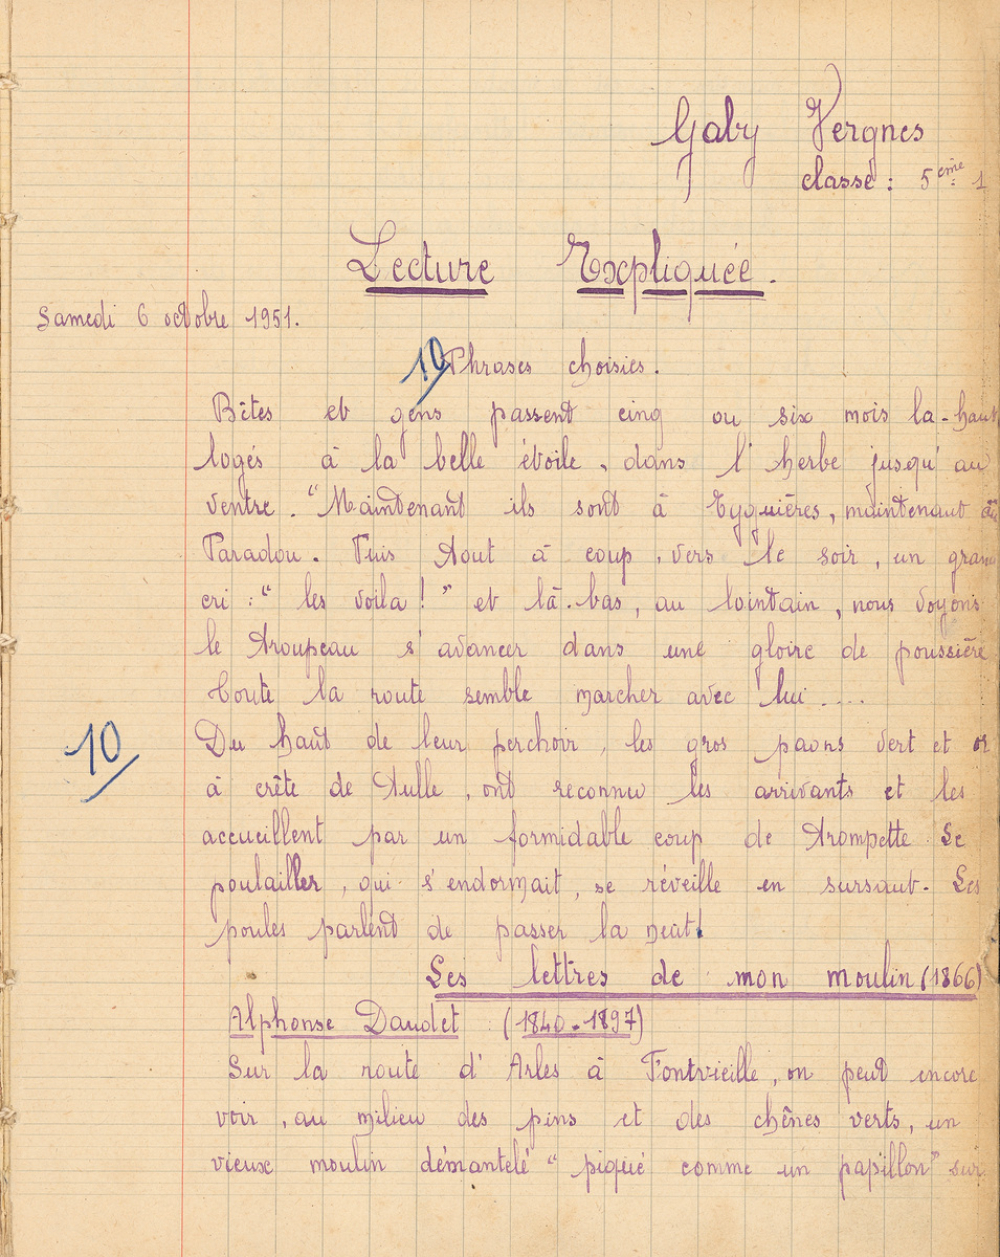 Gaby Vergnes
classe : 5ème 1
Lecture Expliquée.
Samedi 6 octobre 1951.
10 Phrases choisies.
Bêtes et gens passent cinq ou six mois la-haut
logés à la belle étoile, dans l'herbe jusqu'au
ventre. "Maintenant ils sont à Eyguières, maintenant au
Paradou. Puis tout à coup, vers le soir, un grand
cri : "les voila !" et là-bas, au lointain, nous voyons
le troupeau s'avancer dans une gloire de poussière
Toute la route semble marcher avec lui....
10
Du haut de leur perchoir, les gros paons vert et or
à crête de tulle, ont reconnu les arrivants et les
accueillent par un formidable coup de trompette. Le
poulailler, qui s'endormait, se réveille en sursaut. Les
poules parlent de passer la nuit!
Les lettres de mon moulin (1866)
Alphonse Daudet (1840-1897)
Sur la route d'Arles à Fontvieille, on peut encore
voir, au milieu des pins et des chênes verts, un
vieux moulin démantelé "piqué comme un papillon" sur